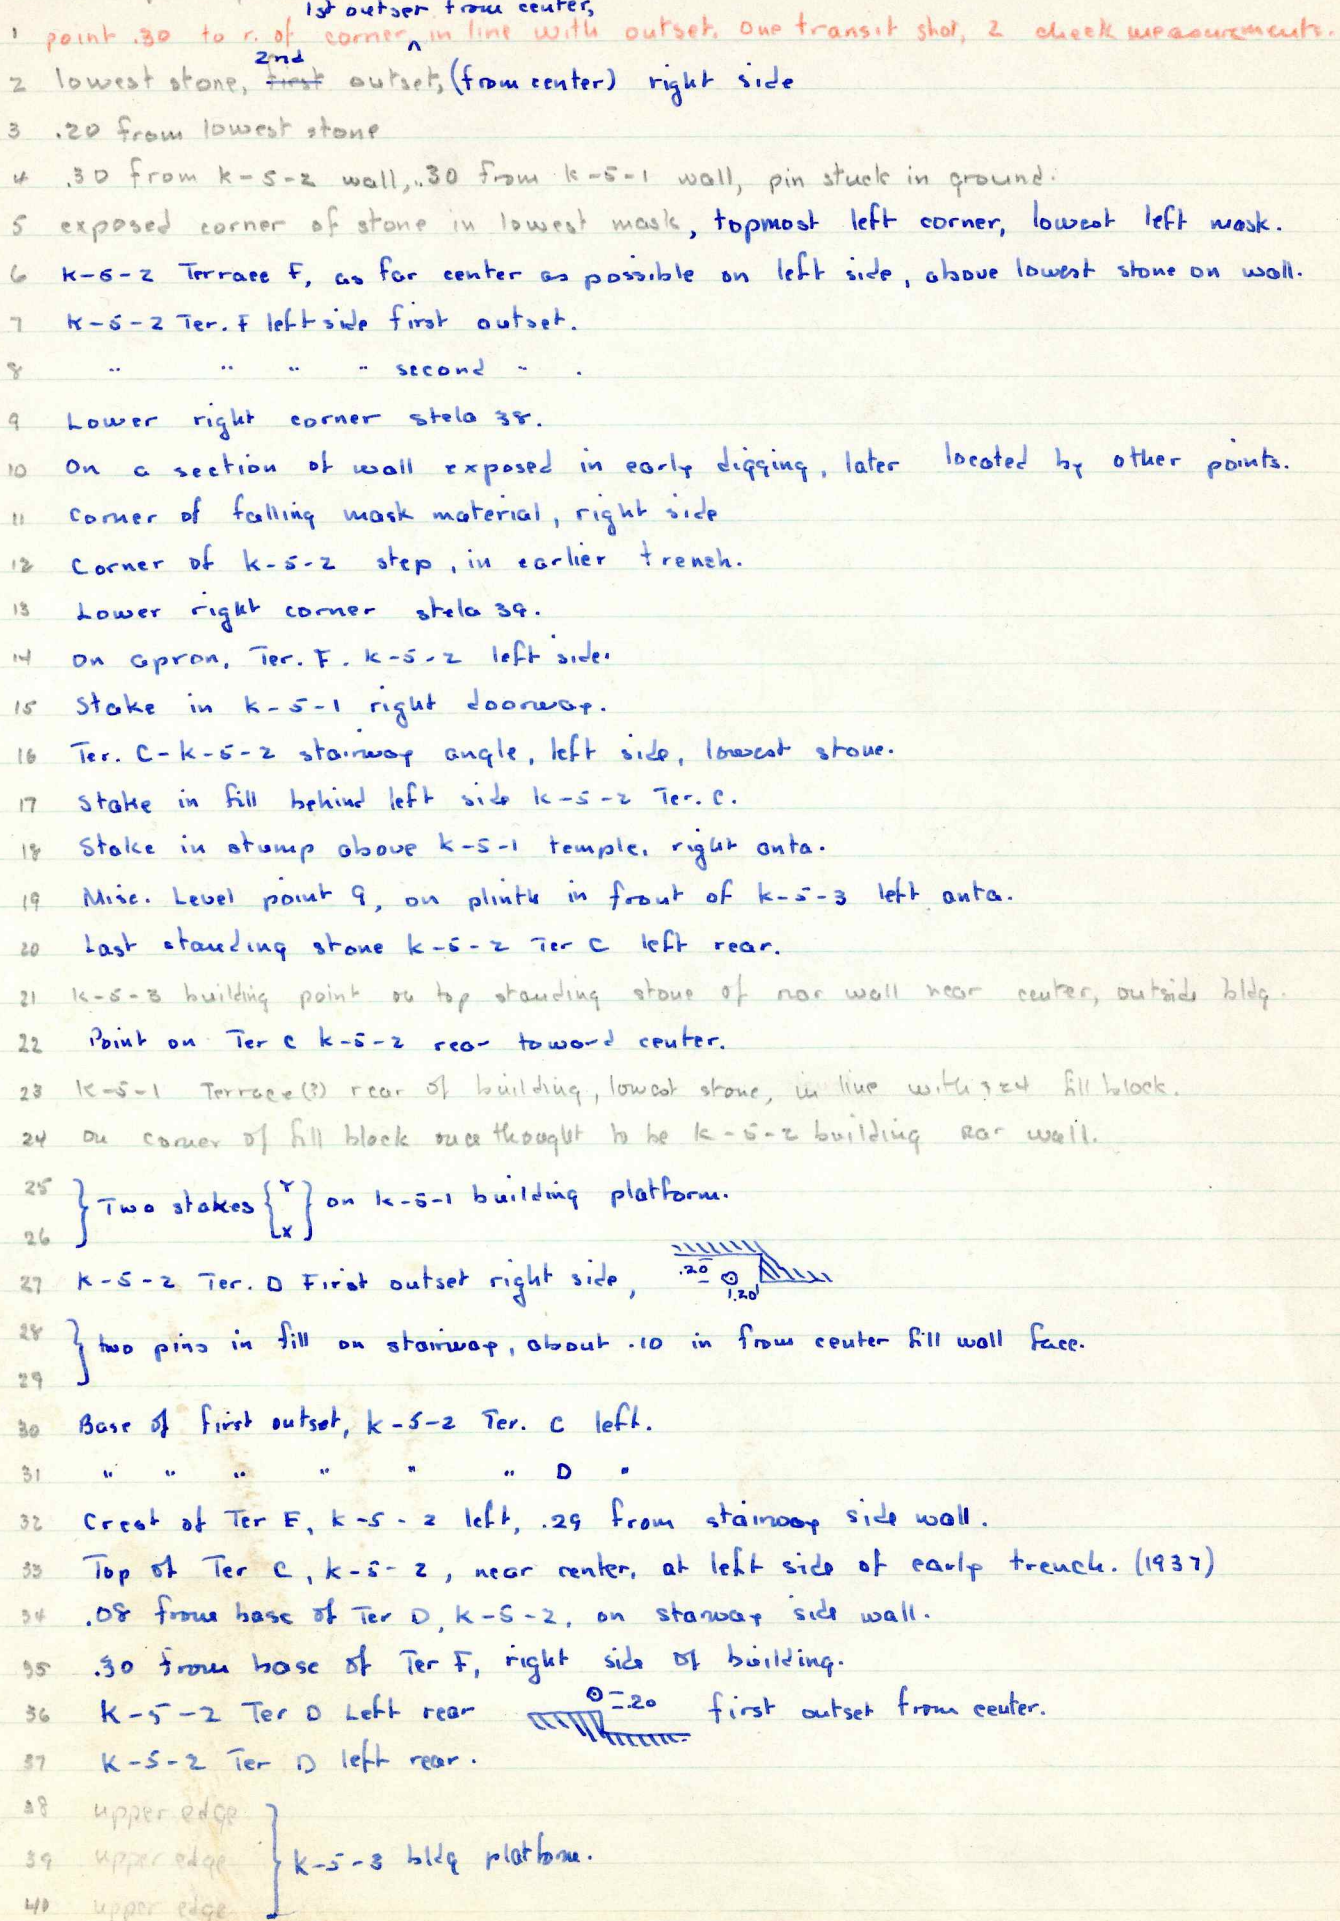 1st outset from center,
1 point .30 to r. of corner ^ in line with outset. One transit shot, 2 check measurements.
2nd
2 lowest stone, first outset, (from center) right side
3 .20 from lowest stone
4 .30 from K-5-2 wall, .30 from K-5-1 wall, pin stuck in ground.
5 exposed corner of stone in lowest mask, topmost left corner, lowest left mask.
6 K-5-2 Terrace F, as far center as possible on left side, above lowest stone on wall.
7 K-5-2 Ter. F left side first outset.
8 " " " " second " .
9 Lower right corner stela 38.
10 On a section of wall exposed in early digging, later located by other points.
11 Corner of falling mask material, right side
12 Corner of K-5-2 step, in earlier trench.
13 Lower right corner stela 39.
14 On apron, Ter. F. K-5-2 left side.
15 Stake in K-5-1 right doorway.
16 Ter. C - K-5-2 stairway angle, left side, lowest stone.
17 Stake in fill behind left side K-5-2 Ter. C.
18 Stake in stump above K-5-1 temple, right anta.
19 Misc. Level point 9, on plinth in front of K-5-3 left anta.
20 Last standing stone K-5-2 Ter C left rear.
21 K-5-3 building point on top standing stone of rear wall near center, outside bldg.
22 Point on Ter C K-5-2 rear toward center.
23 K-5-1 Terrace (?) rear of building, lowest stone, in line with 24 fill block.
24 On corner of fill block once thought to be K-5-2 building rear wall.
25
} Two stakes { Y X } on K-5-1 building platform.
26
27 K-5-2 Ter. D First outset right side, .20 1.20
28
} two pins in fill on stairway, about .10 in from center fill wall face.
29
30 Base of first outset, K-5-2 Ter. C left.
31 " " " " " " D "
32 Crest of Ter E, K-5-2 left, .29 from stairway side wall.
33 Top of Ter C, K-5-2, near center, at left side of early trench. (1937)
34 .08 from base of Ter D, K-5-2, on starway side wall.
35 .30 from base of Ter F, right side of building.
36 K-5-2 Ter D Left rear .20 first outset from center.
37 K-5-2 Ter D left rear.
38 upper edge
39 upper edge } K-5-3 bldg platform.
40 upper edge